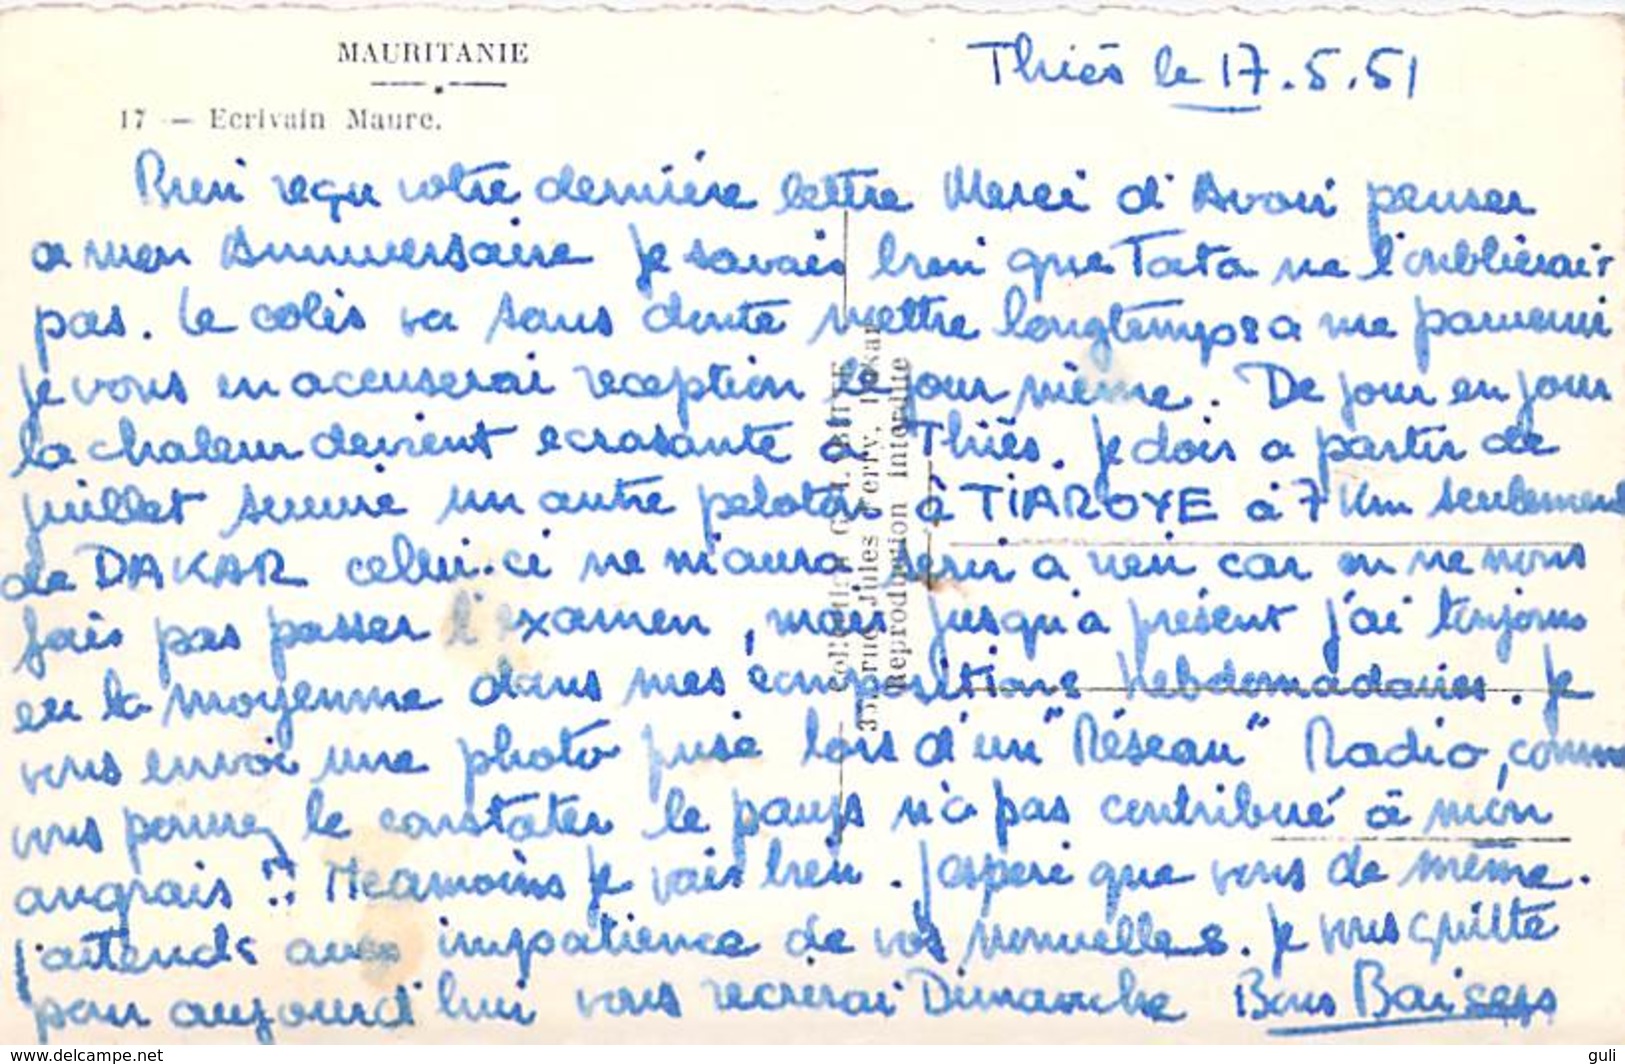 MAURITANIE
17 — Ecrivain Maure.
Thiès le 17.5.51
Bien reçu votre dernière lettre Merci d'Avoir penser
a mon Anniversaire je savais bien que Tata ne l'oublierait
pas. Le colis va sans doute mettre longtemps a me parvenir
je vous en accuserai reception le jour même. De jour en jour
la chaleur devient ecrasante a Thiès. je dois a partir de
juillet suivre un autre peloton à TIAROYE à 7 Km seulement
de DAKAR celui-ci ne m'aura servi a rien car on ne nous
fais pas passer l'examen, mais jusqu'a présent j'ai toujours
eu la moyenne dans mes compositions Hebdomadaires. Je
vous envoi une photo prise lors d'un "Réseau" Radio, comme
vous pouvez le constater le pays n'a pas contribué à mon
angrais !! Neamoins je vais bien. J'espere que vous de même.
j'attends avec impatience de vos nouvelles. Je vous quitte
pour aujourd'hui vous recrirai Dimanche Bons Baisers
Reproduction interdite
delcampe.net
guli